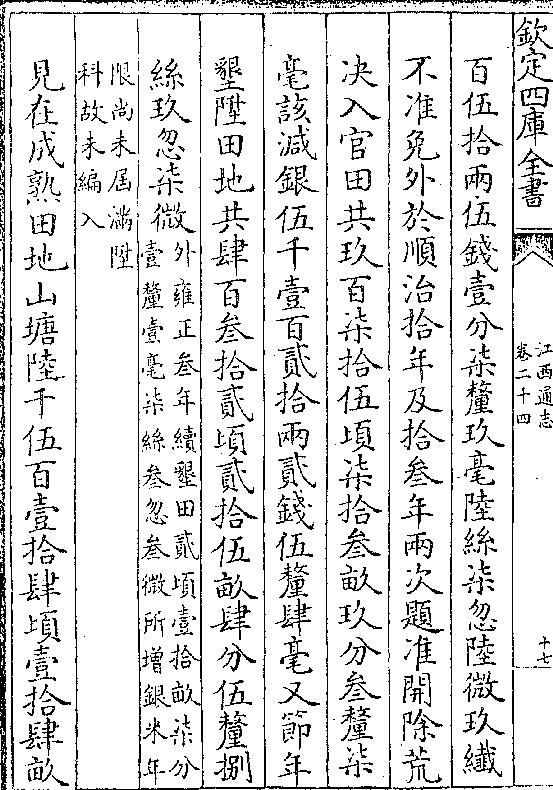 欽定四庫全書
江西通志
卷二十四
十七
百伍拾兩伍錢壹分柒釐玖毫陸絲柒忽陸微玖纖
不准免外於順治拾年及拾叁年兩次題准開除荒
决入官田共玖百柒拾伍頃柒拾叁畝玖分叁釐柒
毫該減銀伍千壹百貳拾兩貳錢伍釐肆毫又節年
墾陞田地共肆百叁拾貳頃貳拾伍畝肆分伍釐捌
絲玖忽柒微
外雍正叁年續墾田貳頃壹拾畝柒分
壹釐壹毫柒絲叁忽叁微所增銀米年
限尚未届滿陞
科故未編入
見在成熟田地山塘陸千伍百壹拾肆頃壹拾肆畝